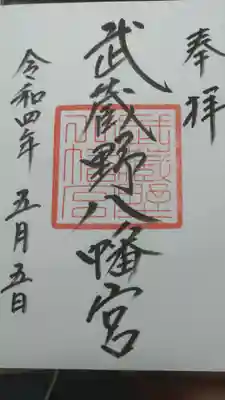 奉拝
武蔵野八幡宮
令和四年 五月五日